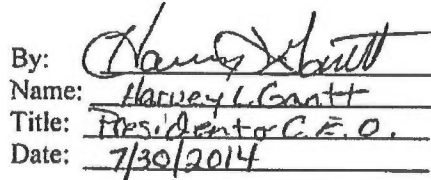 By: Harvey L Gantt
Name: Harvey L. Gantt
Title: President or C.E.O.
Date: 7/30/2014